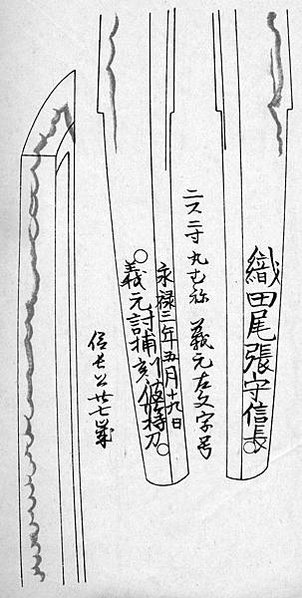 織田尾張守信長
義元左文字号
永禄三年五月十九日
義元討捕刻彼所持刀
信長公廿七歳